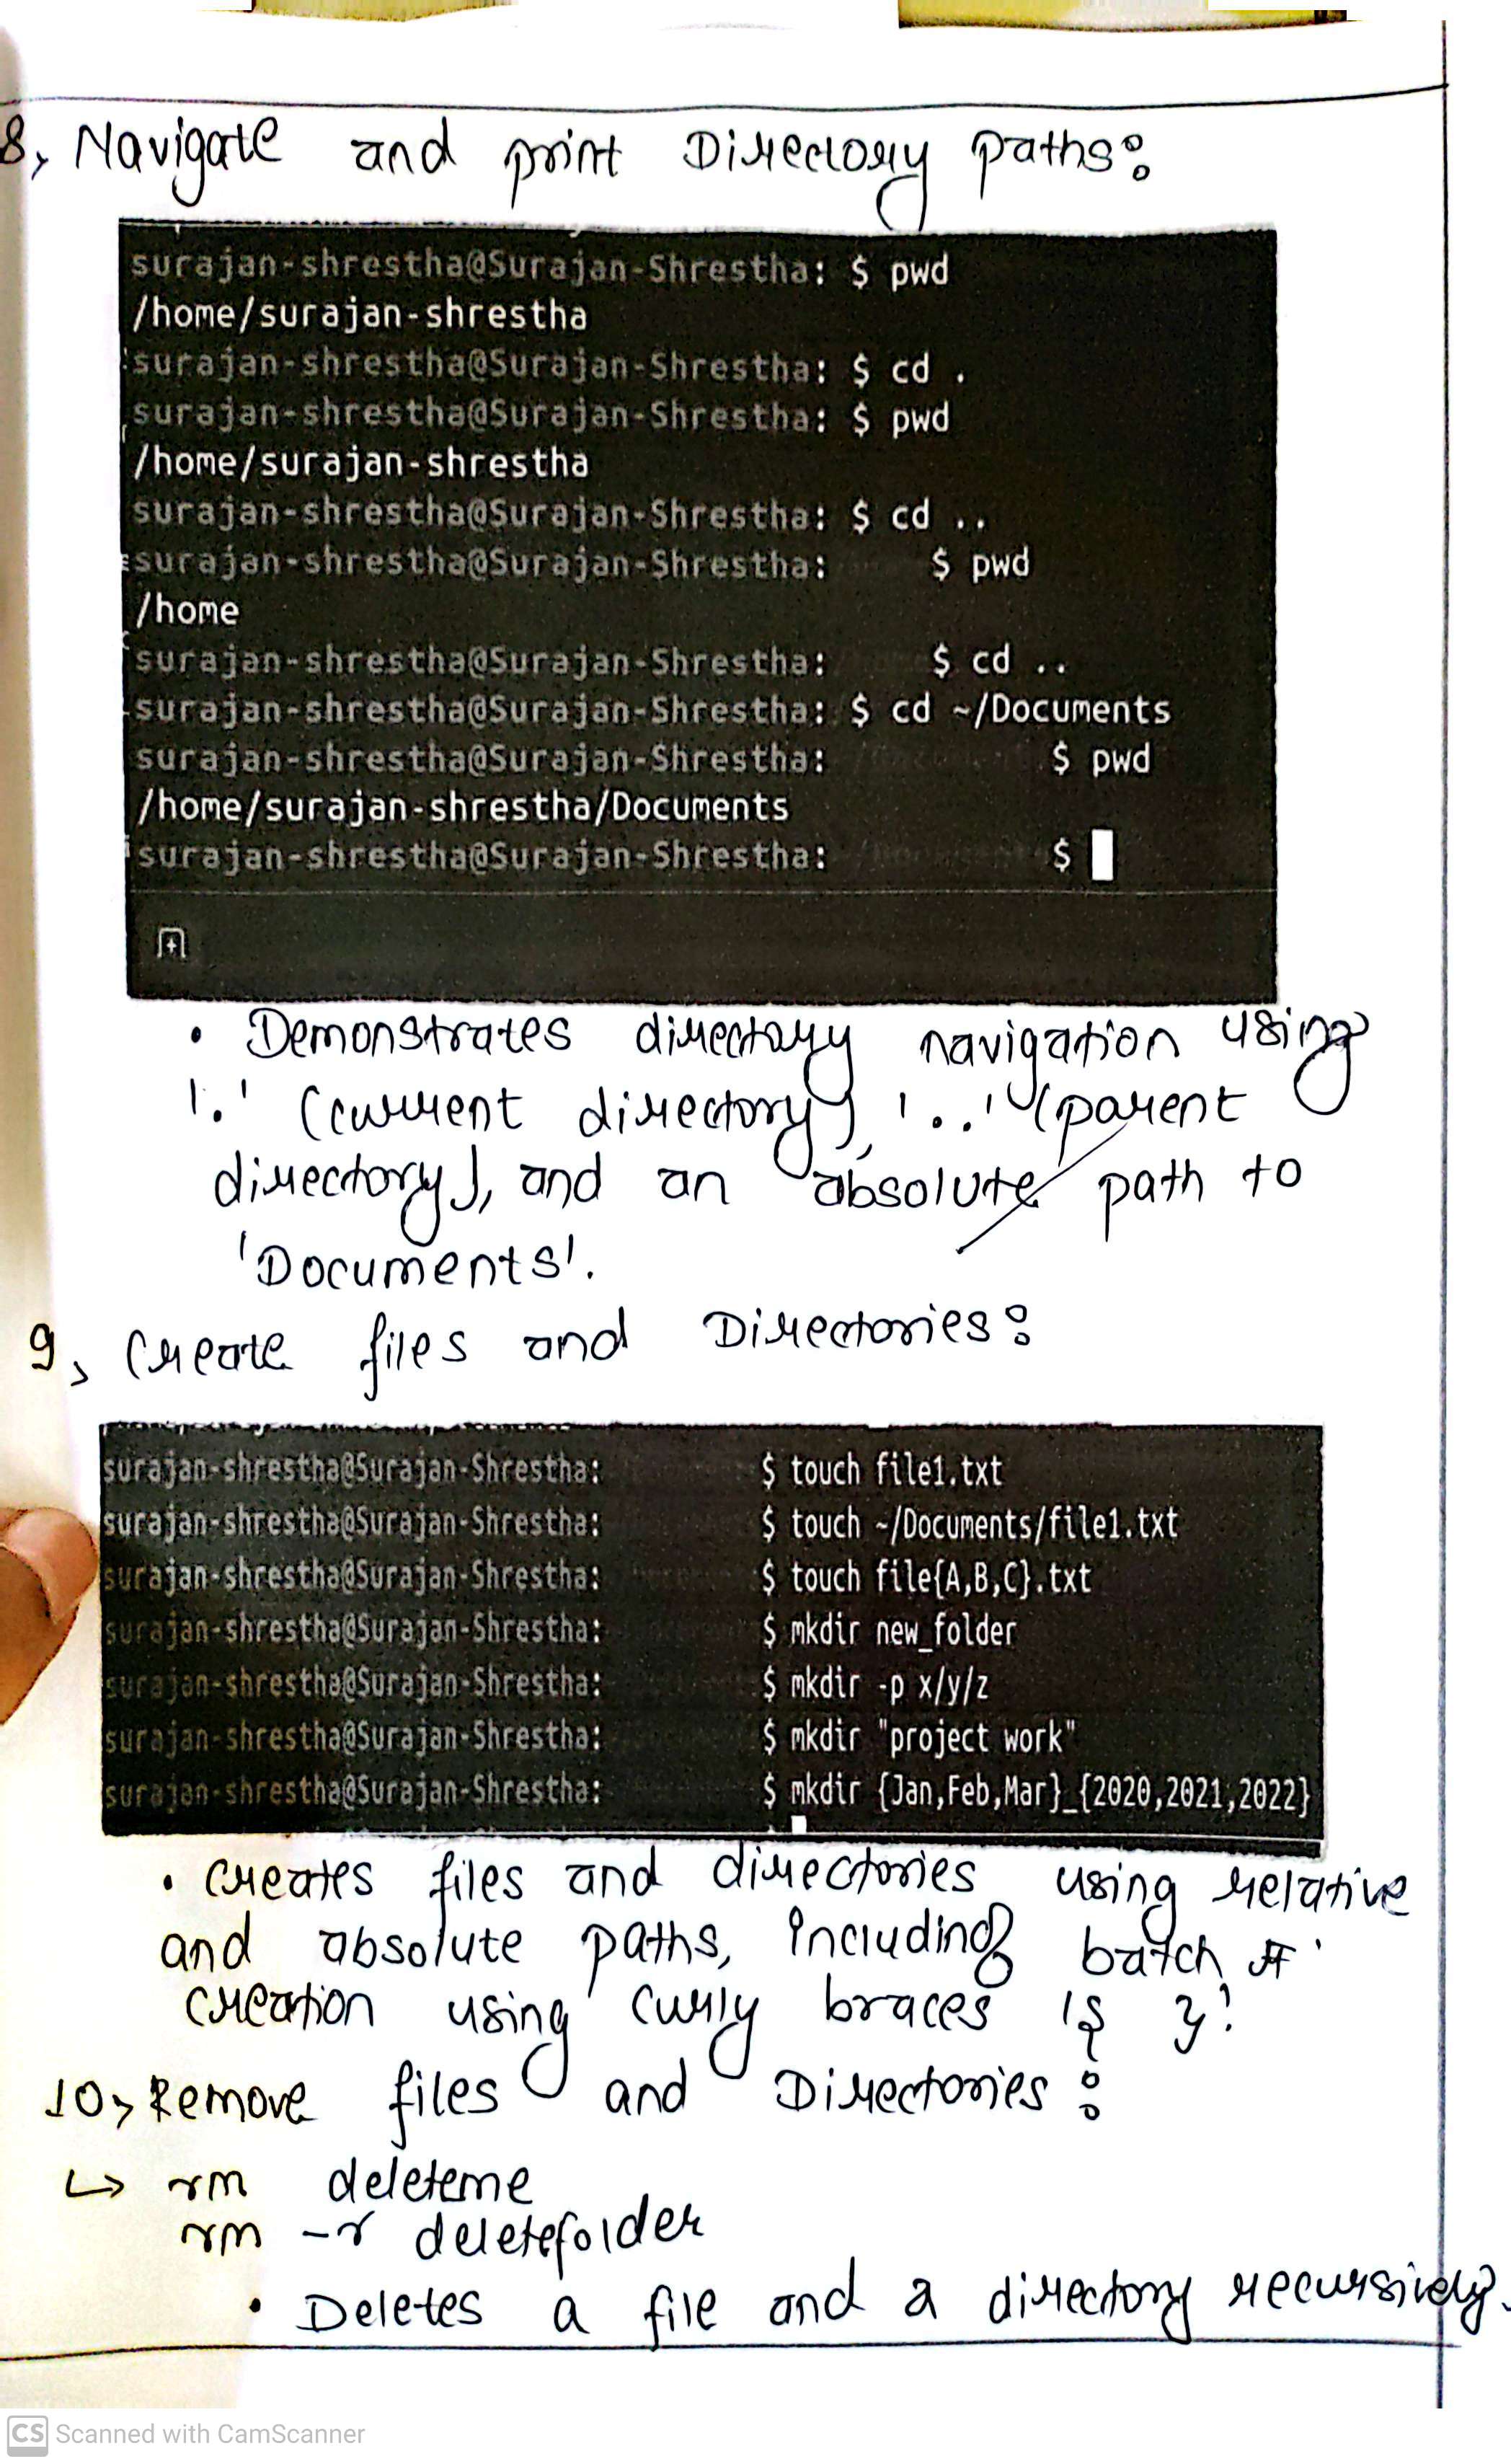 8, Navigate and print Directory paths:
surajan-shrestha@Surajan-Shrestha: $ pwd
/home/surajan-shrestha
surajan-shrestha@Surajan-Shrestha: $ cd .
surajan-shrestha@Surajan-Shrestha: $ pwd
/home/surajan-shrestha
surajan-shrestha@Surajan-Shrestha: $ cd ..
surajan-shrestha@Surajan-Shrestha: $ pwd
/home
surajan-shrestha@Surajan-Shrestha: $ cd ..
surajan-shrestha@Surajan-Shrestha: $ cd ~/Documents
surajan-shrestha@Surajan-Shrestha: $ pwd
/home/surajan-shrestha/Documents
surajan-shrestha@Surajan-Shrestha: $
• Demonstrates directory navigation using
'.' (current directory), '..' (parent
directory), and an absolute path to
'Documents'.
9, Create files and Directories:
surajan-shrestha@Surajan-Shrestha: $ touch file1.txt
surajan-shrestha@Surajan-Shrestha: $ touch ~/Documents/file1.txt
surajan-shrestha@Surajan-Shrestha: $ touch file{A,B,C}.txt
surajan-shrestha@Surajan-Shrestha: $ mkdir new_folder
surajan-shrestha@Surajan-Shrestha: $ mkdir -p x/y/z
surajan-shrestha@Surajan-Shrestha: $ mkdir "project work"
surajan-shrestha@Surajan-Shrestha: $ mkdir {Jan,Feb,Mar}_{2020,2021,2022}
• Creates files and directories using relative
and absolute paths, including batch
creation using curly braces '{ }'.
10, Remove files and Directories:
↳ rm deleteme
rm -r deletefolder
• Deletes a file and a directory recursively.
CS Scanned with CamScanner